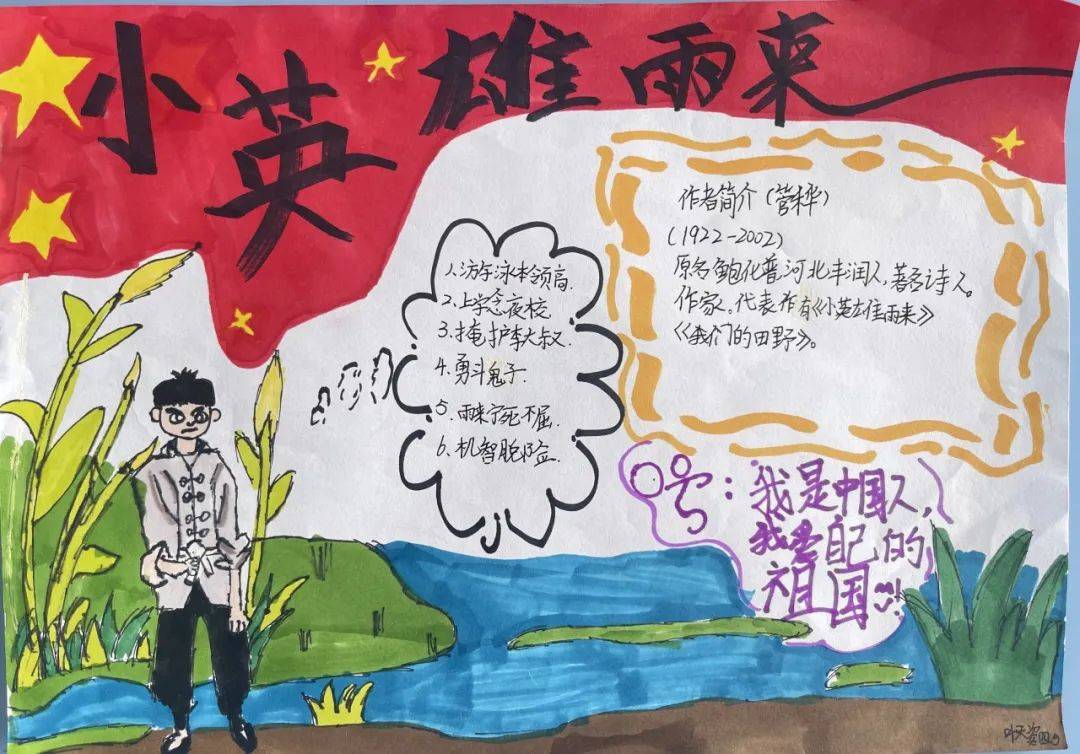 小英雄雨来
1.游泳本领高.
2.上学念夜校
3.掩护李大叔.
4.勇斗鬼子.
5.雨来宁死不屈.
6.机智脱险.
作者简介(管桦)
(1922-2002)
原名鲍化普河北丰润人,著名诗人。
作家。代表作有《小英雄雨来》
《我们的田野》。
口号:我是中国人,
我爱自己的
祖国!
叶天姿